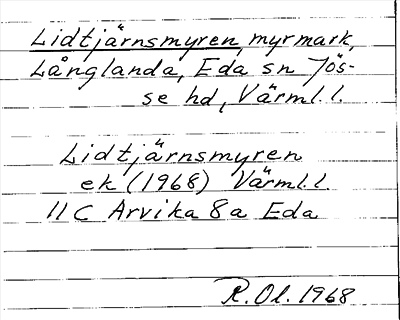 Lidtjärnsmyren, myrmark,
Långlanda, Eda sn Jös-
se hd, Värml.l.
Lidtjärnsmyren
ek (1968) Värml.l.
11 C Arvika 8a Eda
R.Ol. 1968